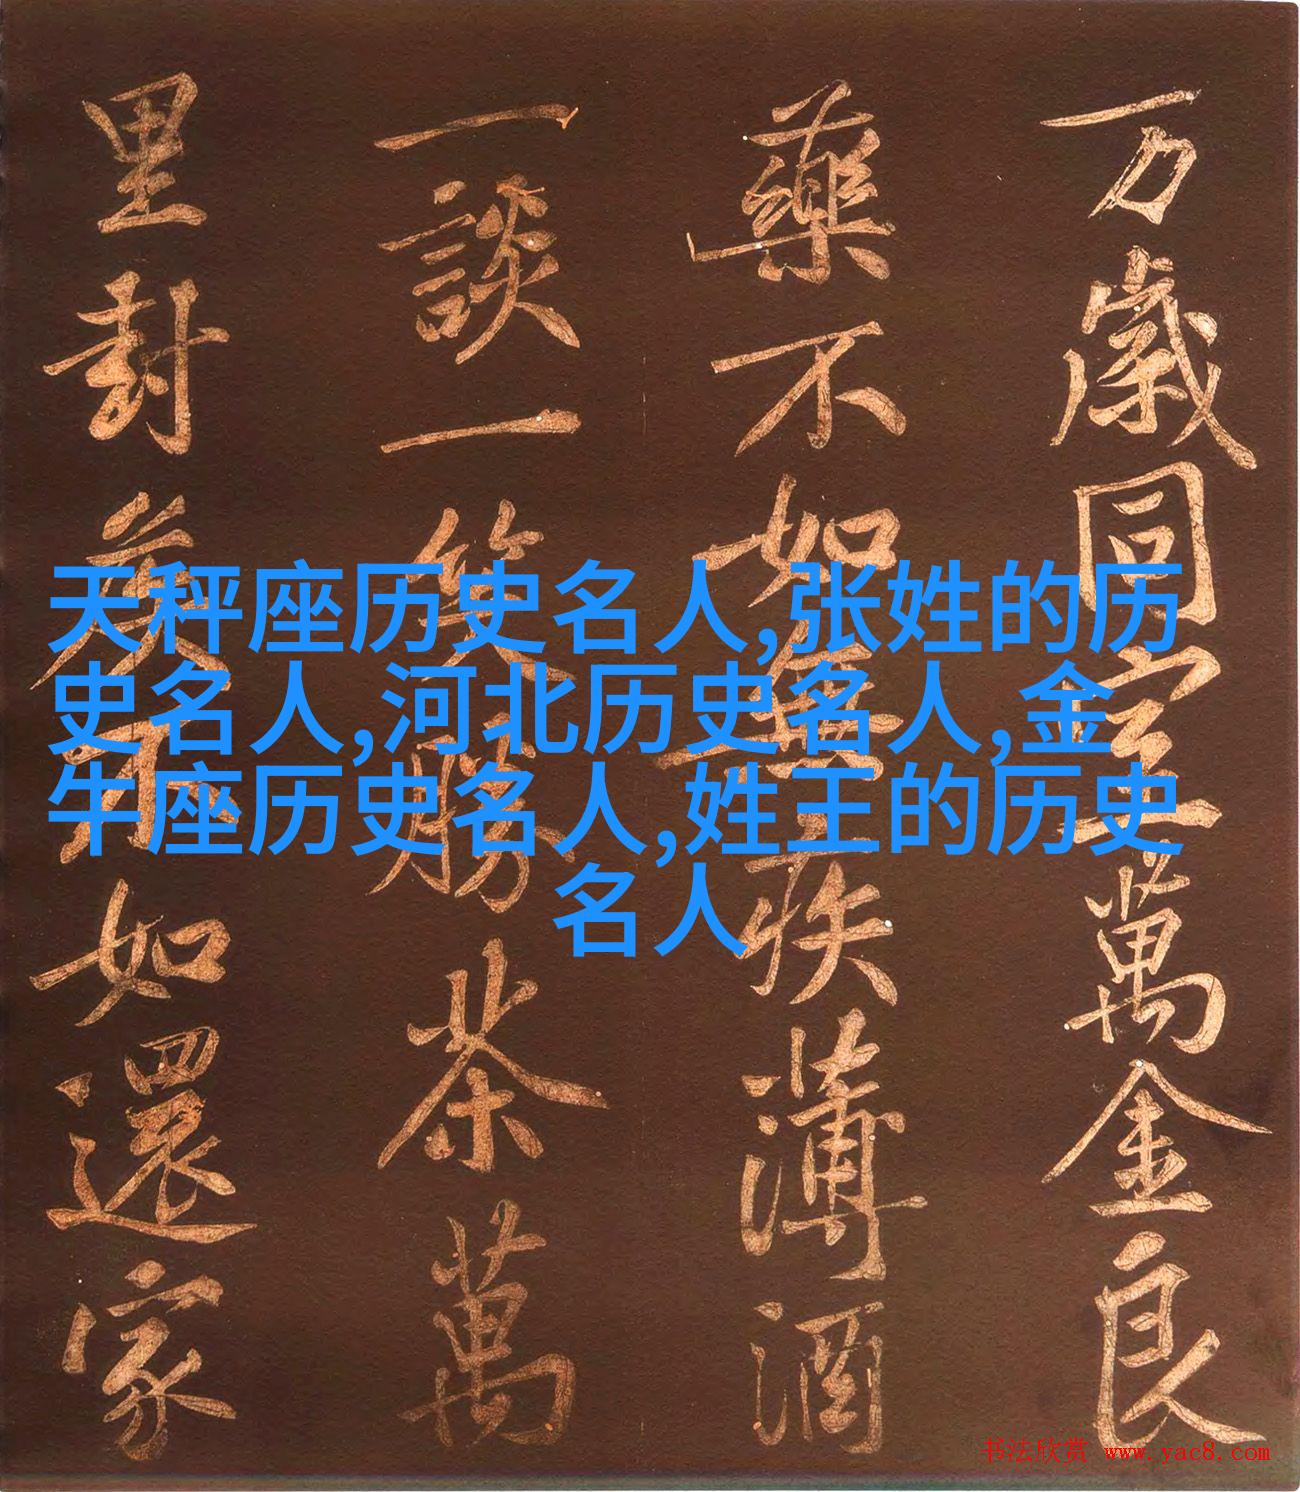 万歲同空萬金良
藥不如無疾薄酒
一談一笑勝茶萬
里封侯不如還家
天秤座历史名人,张姓的历
史名人,河北历史名人,金
牛座历史名人,姓王的历史
名人
书法欣赏 www.yac8.com